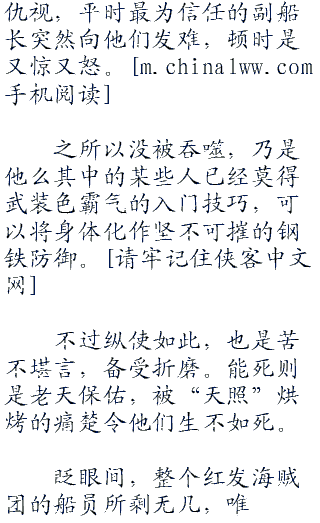 仇视，平时最为信任的副船
长突然向他们发难，顿时是
又惊又怒。[m.china1ww.com
手机阅读]
之所以没被吞噬，乃是
他么其中的某些人已经莫得
武装色霸气的入门技巧，可
以将身体化作坚不可摧的钢
铁防御。[请牢记住侠客中文
网]
不过纵使如此，也是苦
不堪言，备受折磨。能死则
是老天保佑，被“天照”烘
烤的痛楚令他们生不如死。
眨眼间，整个红发海贼
团的船员所剩无几，唯